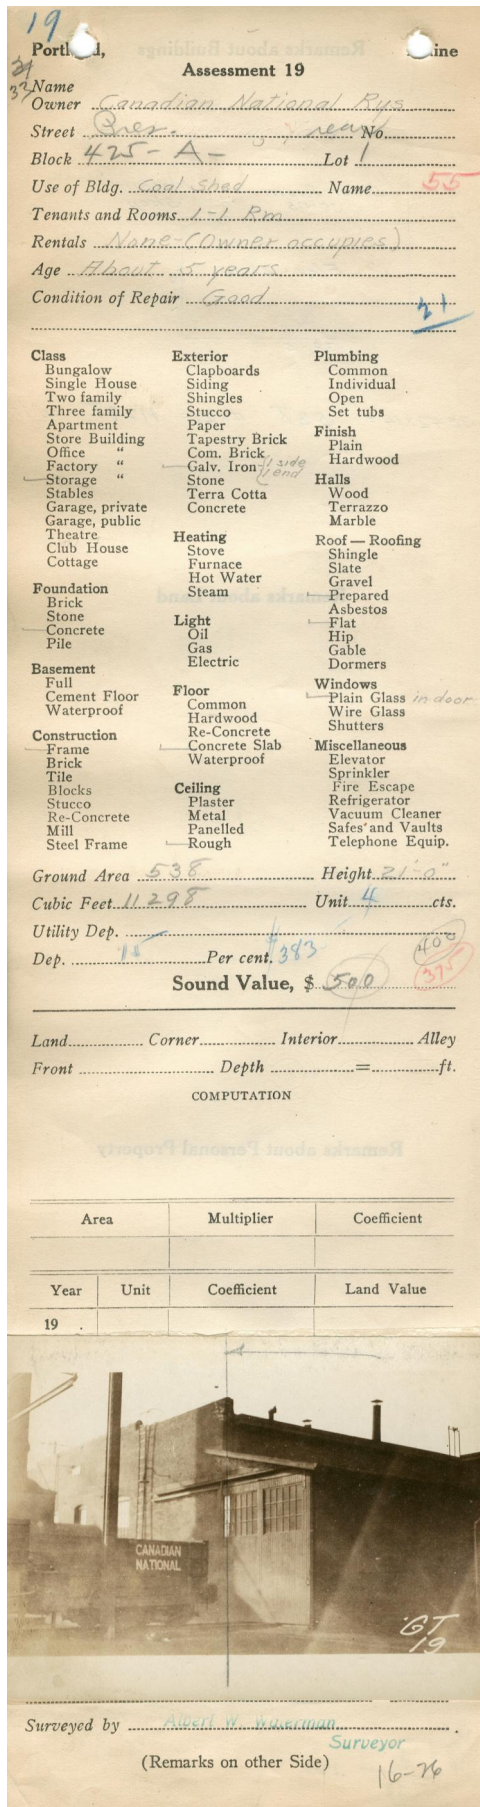 19
Portland, Maine
Assessment 19
Name
Owner Canadian National Rys
Street rear No.
Block 425-A- Lot 1
Use of Bldg. Coal shed Name 55
Tenants and Rooms 1-1 Rm
Rentals None-(Owner occupies)
Age About 5 years
Condition of Repair Good
21
Class
Bungalow
Single House
Two family
Three family
Apartment
Store Building
Office "
Factory "
Storage "
Stables
Garage, private
Garage, public
Theatre
Club House
Cottage
Foundation
Brick
Stone
Concrete
Pile
Basement
Full
Cement Floor
Waterproof
Construction
Frame
Brick
Tile
Blocks
Stucco
Re-Concrete
Mill
Steel Frame
Exterior
Clapboards
Siding
Shingles
Stucco
Paper
Tapestry Brick
Com. Brick
Galv. Iron 1 side
1 end
Stone
Terra Cotta
Concrete
Heating
Stove
Furnace
Hot Water
Steam
Light
Oil
Gas
Electric
Floor
Common
Hardwood
Re-Concrete
Concrete Slab
Waterproof
Ceiling
Plaster
Metal
Panelled
Rough
Plumbing
Common
Individual
Open
Set tubs
Finish
Plain
Hardwood
Halls
Wood
Terrazzo
Marble
Roof — Roofing
Shingle
Slate
Gravel
Prepared
Asbestos
Flat
Hip
Gable
Dormers
Windows
Plain Glass in door
Wire Glass
Shutters
Miscellaneous
Elevator
Sprinkler
Fire Escape
Refrigerator
Vacuum Cleaner
Safes and Vaults
Telephone Equip.
Ground Area 538 Height 21'-0"
Cubic Feet 11298 Unit 4 cts.
Utility Dep. 400
Dep. 15 Per cent. $383 375
Sound Value, $ 500
Land Corner Interior Alley
Front Depth = ft.
COMPUTATION
Area Multiplier Coefficient
Year Unit Coefficient Land Value
19 .
CANADIAN
NATIONAL
GT
19
Surveyed by Albert W. Waterman .
Surveyor
(Remarks on other Side)
16-26